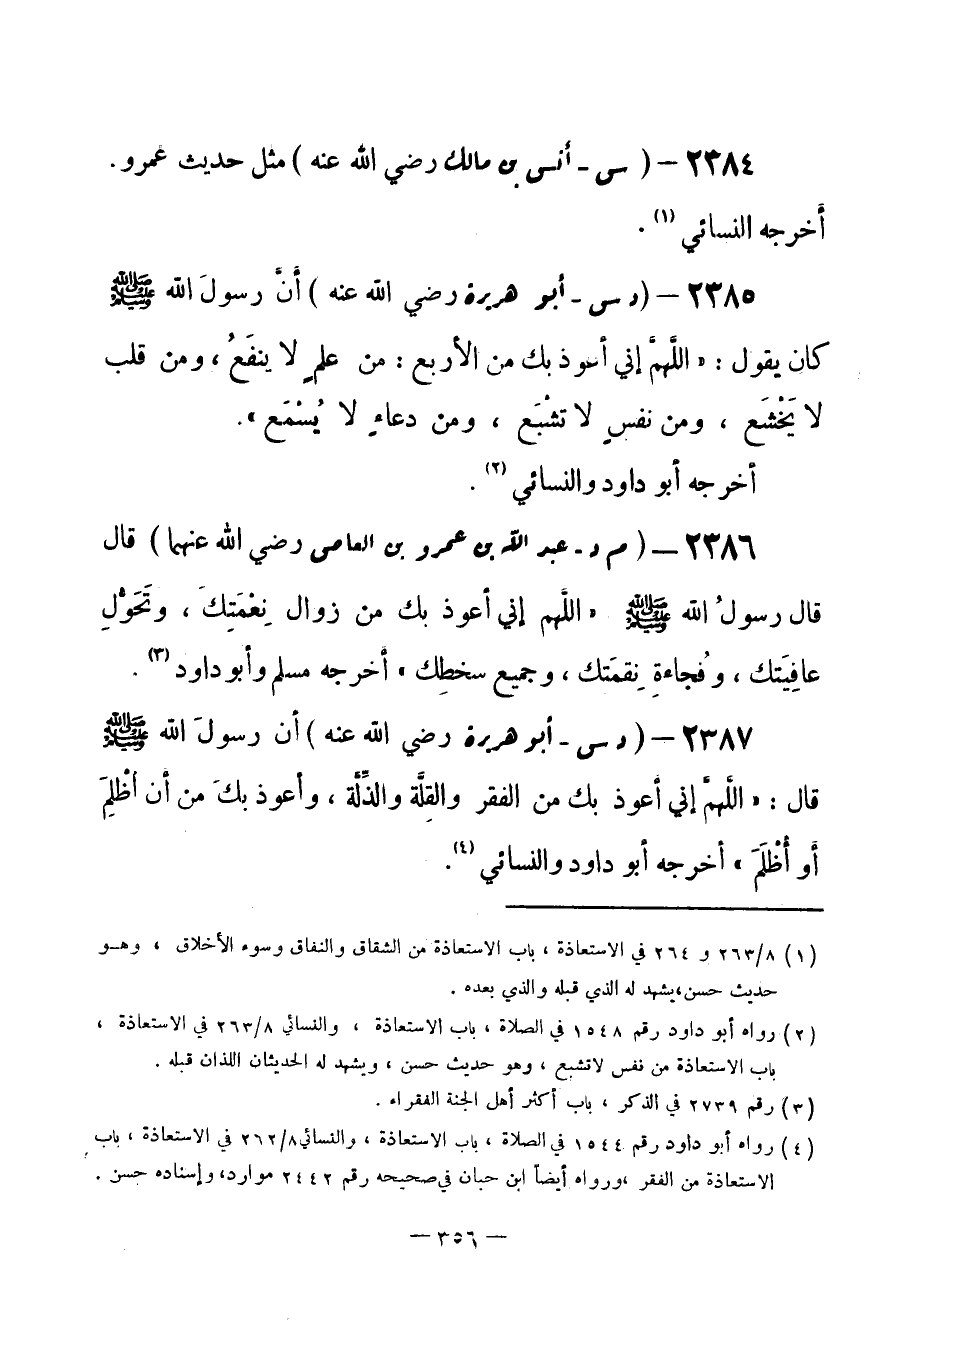 ٢٣٨٤ – ( س - أنس بن مالك رضي الله عنه ) مثل حديث عمرو .
أخرجه النسائي (١) .
٢٣٨٥ – (د س - أبو هريرة رضي الله عنه ) أنَّ رسولَ الله ﷺ
كان يقول : « اللَّهمَّ إني أعوذ بك من الأربع : من علمٍ لا ينفَعُ ، ومن قلب
لا يَخْشَع ، ومن نفسٍ لا تشْبَع ، ومن دعاءٍ لا يُسْمَع » .
أخرجه أبو داود والنسائي (٢) .
٢٣٨٦ – ( م د - عبد الله بن عمرو بن العاص رضي الله عنهما ) قال
قال رسولُ الله ﷺ « اللَّهم إني أعوذ بك من زوال نِعْمَتِكَ ، وتَحَوُّلِ
عافِيَتك ، وفُجاءةِ نِقمَتك ، وجميع سخطِك » أخرجه مسلم وأبو داود (٣) .
٢٣٨٧ – ( د س - أبو هريرة رضي الله عنه ) أن رسولَ الله ﷺ
قال : « اللَّهمَّ إني أعوذ بك من الفقر والقِلَّة والذِّلَّة ، وأعوذ بكَ من أن أظْلِمَ
أو أُظْلَمَ » أخرجه أبو داود والنسائي (٤) .
(١) ٢٦٣/٨ و ٢٦٤ في الاستعاذة ، باب الاستعاذة من الشقاق والنفاق وسوء الأخلاق ، وهـو
حديث حسن ، يشهد له الذي قبله والذي بعده .
(٢) رواه أبو داود رقم ١٥٤٨ في الصلاة ، باب الاستعاذة ، والنسائي ٢٦٣/٨ في الاستعاذة ،
باب الاستعاذة من نفس لاتشبع ، وهو حديث حسن ، ويشهد له الحديثان اللذان قبله .
(٣) رقم ٢٧٣٩ في الذكر ، باب أكثر أهل الجنة الفقراء .
(٤) رواه أبو داود رقم ١٥٤٤ في الصلاة ، باب الاستعاذة ، والنسائي ٢٦٢/٨ في الاستعاذة ، باب
الاستعاذة من الفقر ، ورواه أيضاً ابن حبان في صحيحه رقم ٢٤٤٢ موارد، وإسناده حسن .
– ٣٥٦ –